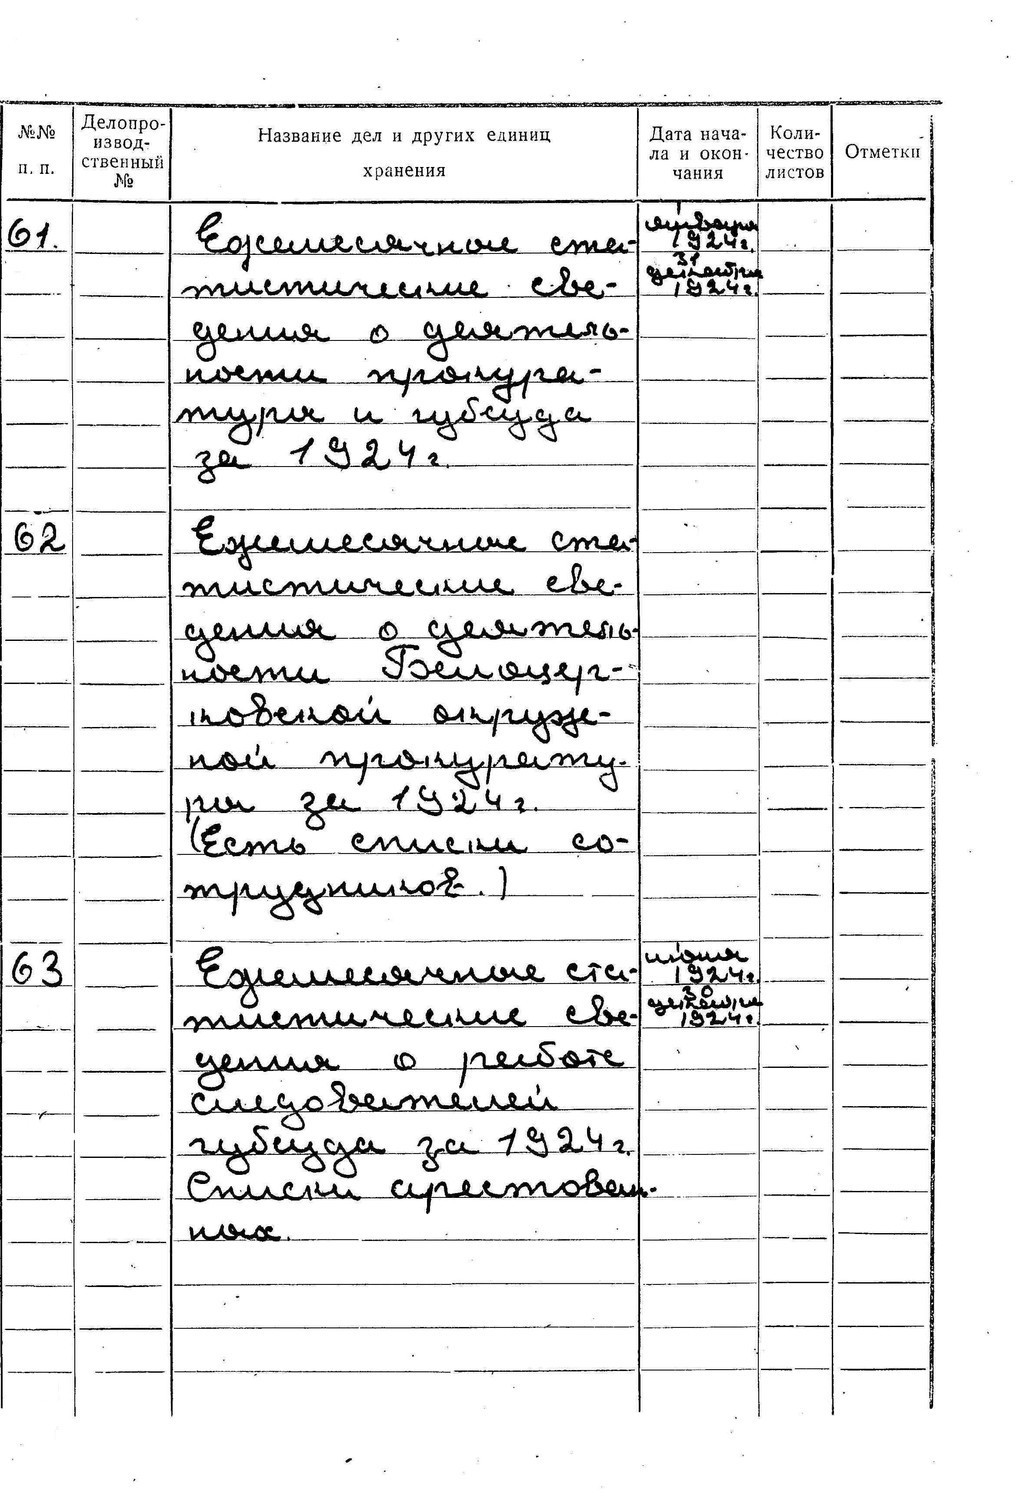 №№ п. п.
Делопроизвод-ственный №
Название дел и других единиц хранения
Дата нача-ла и окон-чания
Коли-чество листов
Отметки
61.
Ежемесячные ста-
тистические све-
дения о деятель-
ности прокура-
туры и губсуда
за 1924г.
1
января
1924г.
31
декабря
1924г.
62
Ежемесячные ста-
тистические све-
дения о деятель-
ности Белоцер-
ковской окруж-
ной прокурату-
ры за 1924г.
(Есть списки со-
трудников.)
63
Ежемесячные ста-
тистические све-
дения о работе
следователей
губсуда за 1924г.
Списки арестован-
ных.
июня
1924г.
30
декабря
1924г.